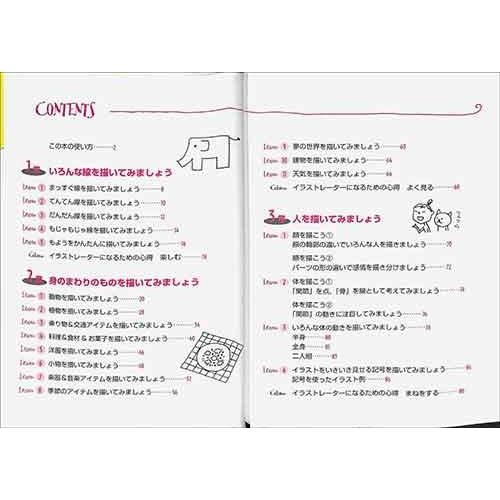 CONTENTS
この本の使い方……2
1章 いろんな線を描いてみましょう
Item 1 まっすぐ線を描いてみましょう……8
Item 2 てんてん線を描いてみましょう……10
Item 3 だんだん線を描いてみましょう……12
Item 4 もじゃもじゃ線を描いてみましょう……14
Item 5 もようをかんたんに描いてみましょう……16
Column イラストレーターになるための心得 楽しむ……18
2章 身のまわりのものを描いてみましょう
Item 1 動物を描いてみましょう……20
Item 2 植物を描いてみましょう……28
Item 3 乗り物&交通アイテムを描いてみましょう……36
Item 4 料理&食材&お菓子を描いてみましょう……40
Item 5 洋服を描いてみましょう……46
Item 6 小物を描いてみましょう……48
Item 7 楽器&音楽アイテムを描いてみましょう……54
Item 8 季節のアイテムを描いてみましょう……56
Item 9 夢の世界を描いてみましょう……60
Item 10 建物を描いてみましょう……64
Item 11 天気を描いてみましょう……66
Column イラストレーターになるための心得 よく見る……68
3章 人を描いてみましょう
Item 1 顔を描こう①
顔の輪郭の違いでいろんな人を描きましょう……70
顔を描こう②
パーツの形の違いで感情を描き分けましょう……72
Item 2 体を描こう①
「関節」を点、「骨」を線として考えてみましょう……74
体を描こう②
「関節」の動きに注目してみましょう……76
Item 3 いろんな体の動きを描いてみましょう
半身……80
全身……81
二人組……83
Item 4 イラストをいきいき見せる記号を描いてみましょう……84
記号を使ったイラスト例……86
Column イラストレーターになるための心得 まねをする……88